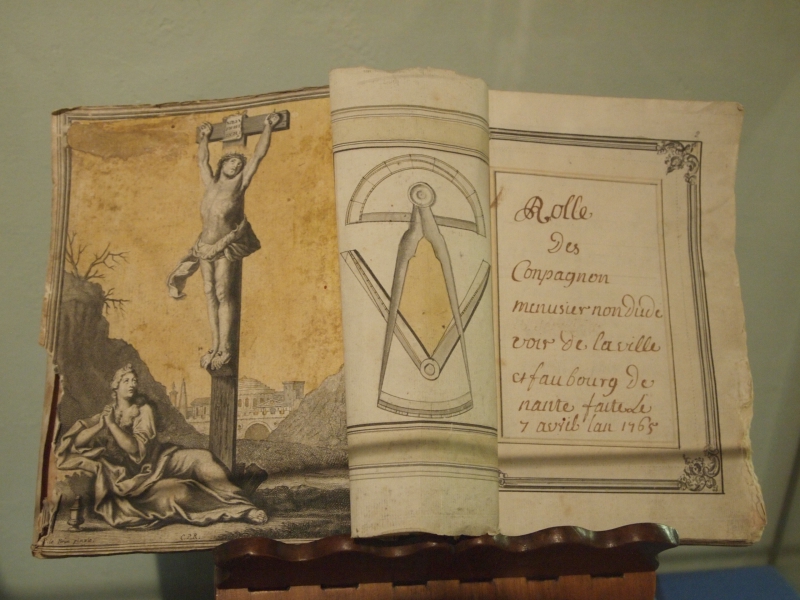 Rolle
des
Conpagnon
menusier non du de
voir de la ville
et faubourg de
nante faite Le
7 avril lan 1765